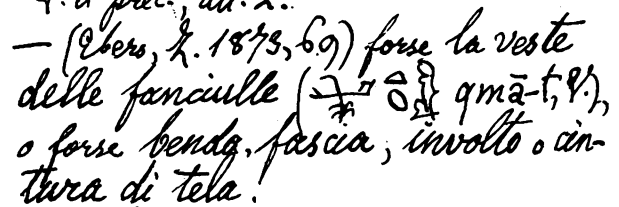 — (Ebers, Z. 1873, 69) forse la veste
delle fanciulle ( qmā-t, V.),
o forse benda, fascia, involto o cin-
tura di tela.